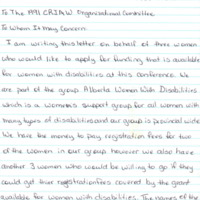 To The 1991 CRIAW Organizational Committee
To Whom It May Concern
I am writing this letter on behalf of three women
who would like to apply for funding that is available
for women with disabilities at this conference. We
are part of the group Alberta Women With Disabilities
which is a women's support group for all women with
many types of disabilities and our group is provincial wide
We have the money to pay registration fees for two
of the women in our group however we also have
another 3 women who would be willing to go if they
could get their registration fees covered by the grant
available for women with disabilities. The names of the